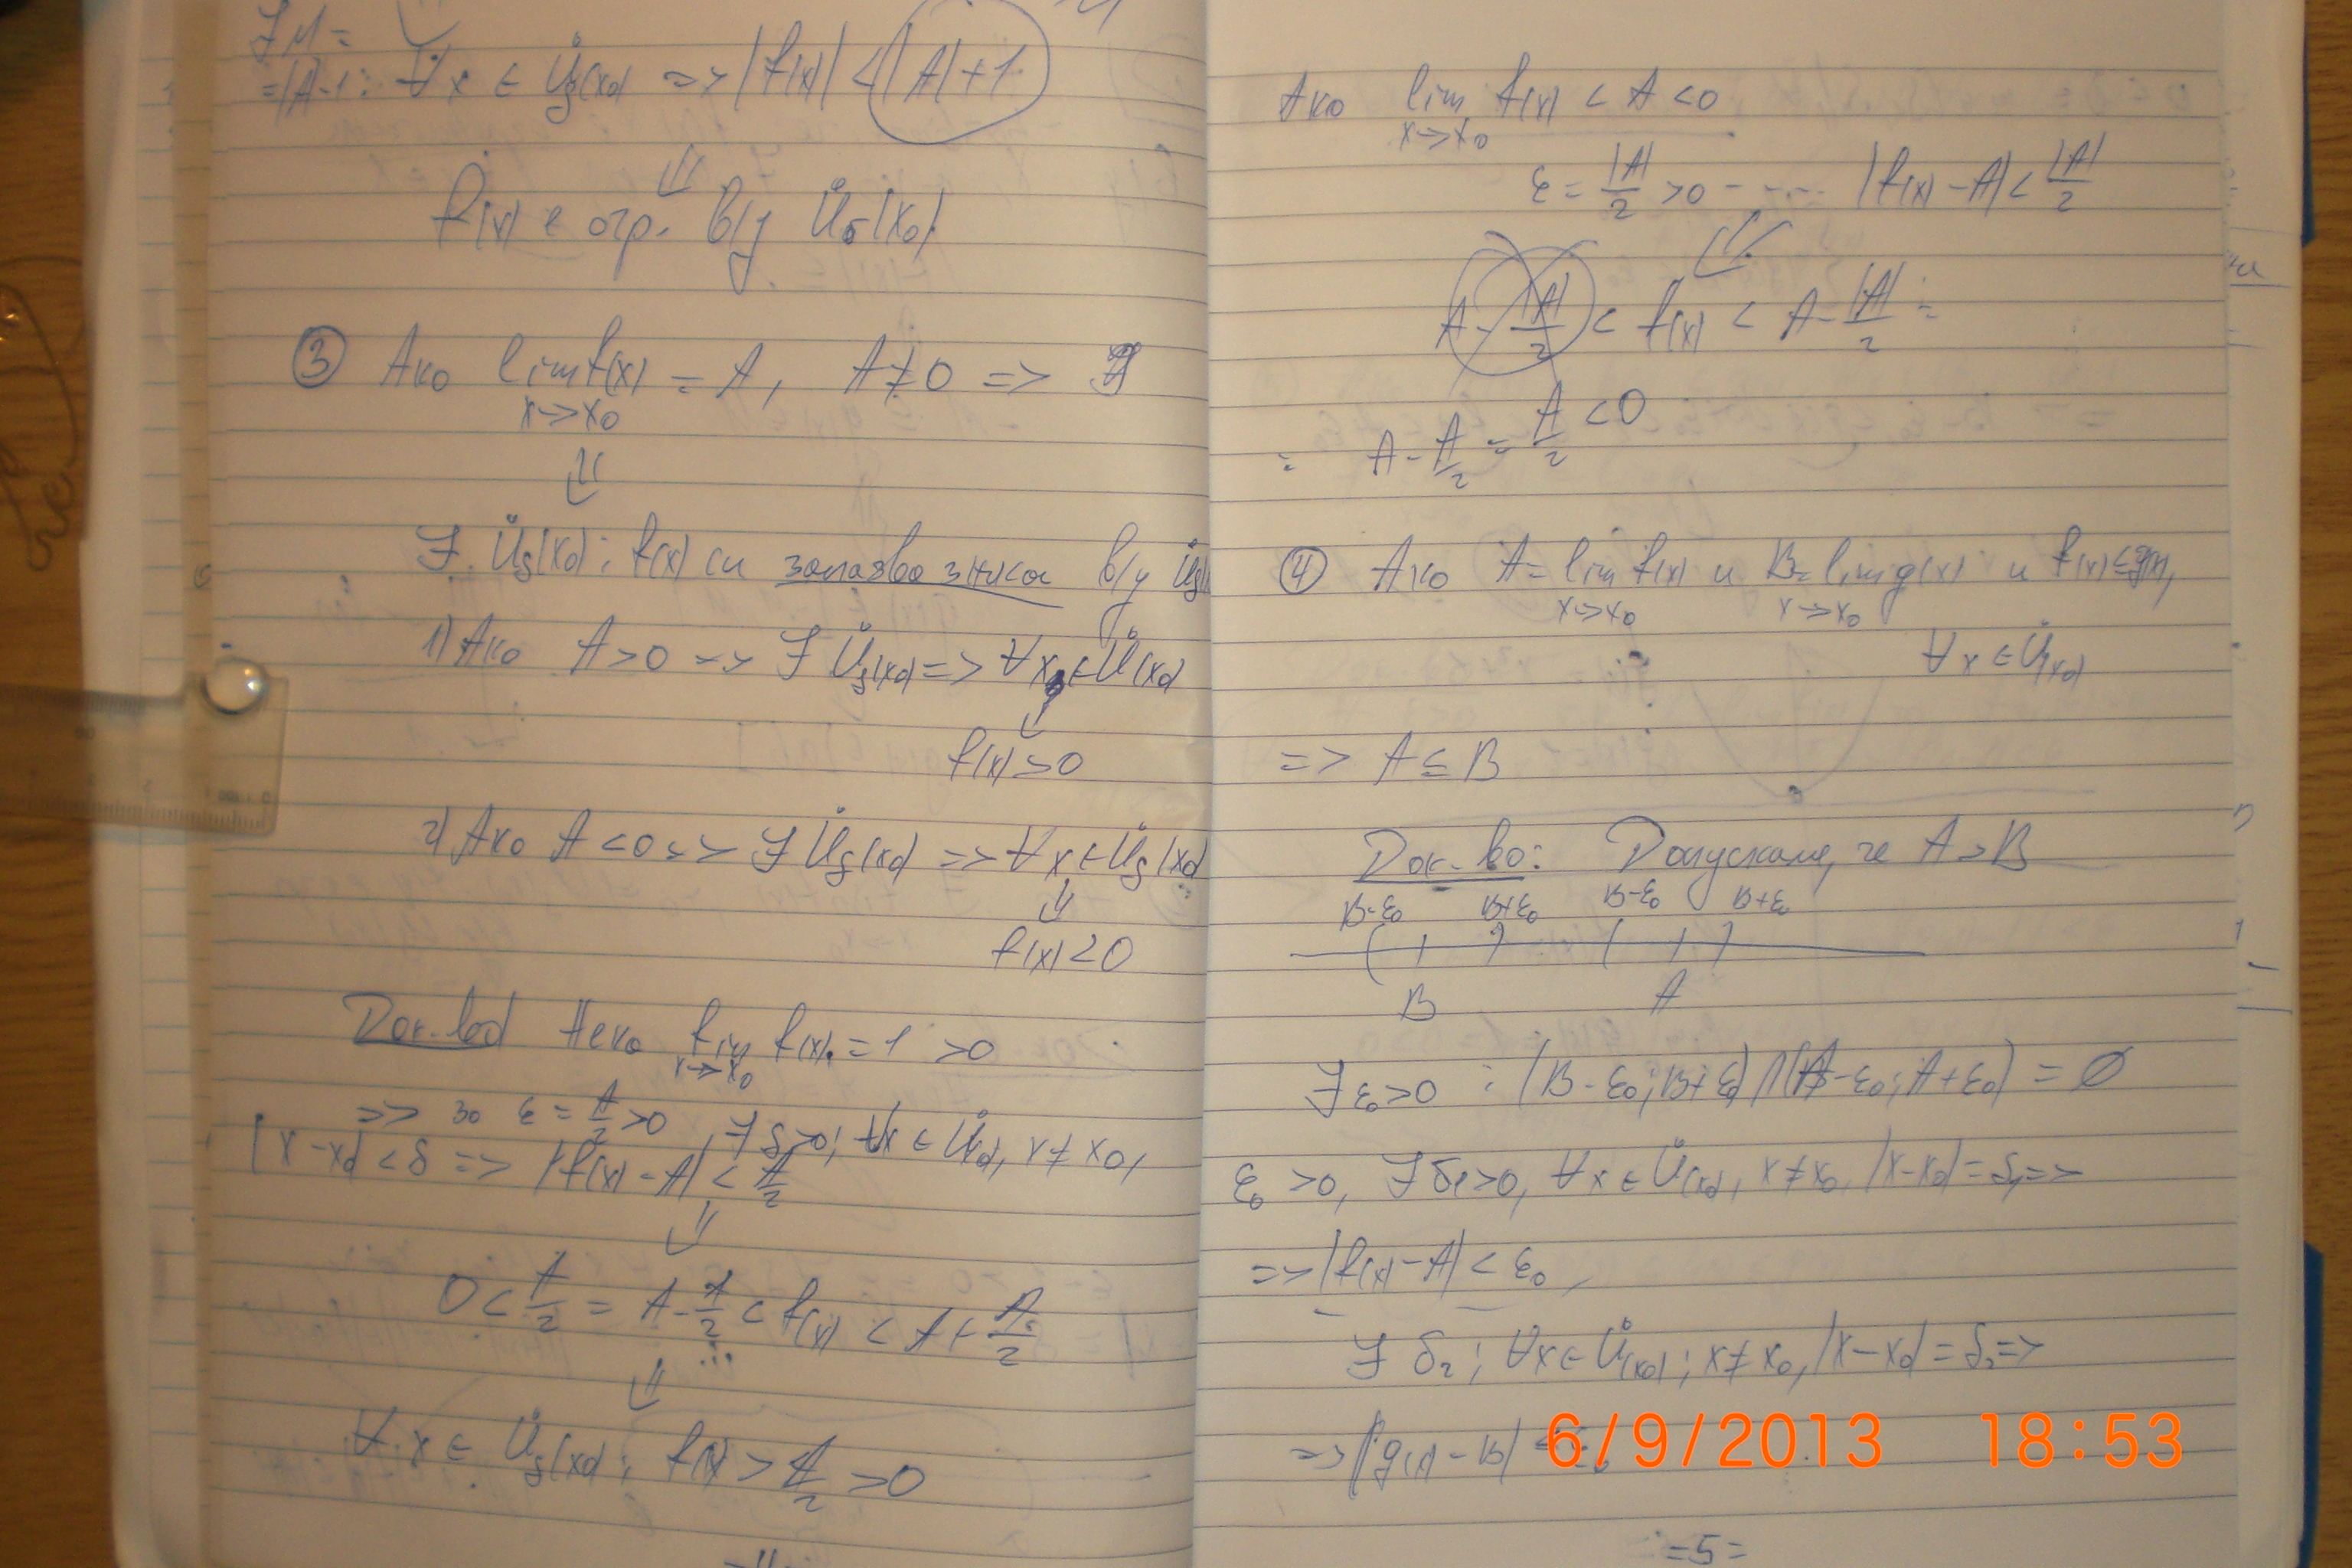 ∃ M =
= |A|-1 : ∀x ∈ Ů_δ(x₀) => |f(x)| < |A|+1
⇓
f(x) е огр. в/у Ů_δ(x₀)
③ Ако lim f(x) = A, A≠0 => ∃
x→x₀
⇓
∃ Ů_δ(x₀): f(x) си запазва знака в/у Ů_δ(
1) Ако A>0 => ∃ Ů_δ(x₀) => ∀x ∈ Ů(x₀)
⇓
f(x)>0
2) Ако A<0 => ∃ Ů_δ(x₀) => ∀x ∈ Ů_δ(x₀)
⇓
f(x)<0
Док-во Нека lim f(x) = 1 >0
x→x₀
=> за ε = A/2 >0 ∃ δ>0; ∀x ∈ Ů(x₀), x≠x₀,
|x-x₀|<δ => |f(x)-A| < A/2
⇓
0 < A/2 = A - A/2 < f(x) < A + A/2
⇓
∀x ∈ Ů_δ(x₀); f(x) > A/2 >0
Ако lim f(x) < A <0
x→x₀
ε = |A|/2 >0 ...... |f(x)-A| < |A|/2
⇓
A - |A|/2 < f(x) < A - |A|/2 =
= A - A/2 = A/2 <0
④ Ако A= lim f(x) и B= lim g(x) и f(x)≤g(x),
x→x₀ x→x₀
∀x ∈ Ů(x₀)
=> A ≤ B
Док-во: Допускаме, че A>B
B-ε₀ B+ε₀ B-ε₀ B+ε₀
B A
∃ ε₀>0 : (B-ε₀; B+ε₀) ∩ (A-ε₀; A+ε₀) = ∅
ε₀ >0, ∃ δ₁>0, ∀x ∈ Ů(x₀), x≠x₀, |x-x₀|=δ₁ =>
=> |f(x)-A| < ε₀,
∃ δ₂; ∀x ∈ Ů(x₀); x≠x₀, |x-x₀|=δ₂ =>
=> |g(x)-B| <
6/9/2013 18:53
=5=